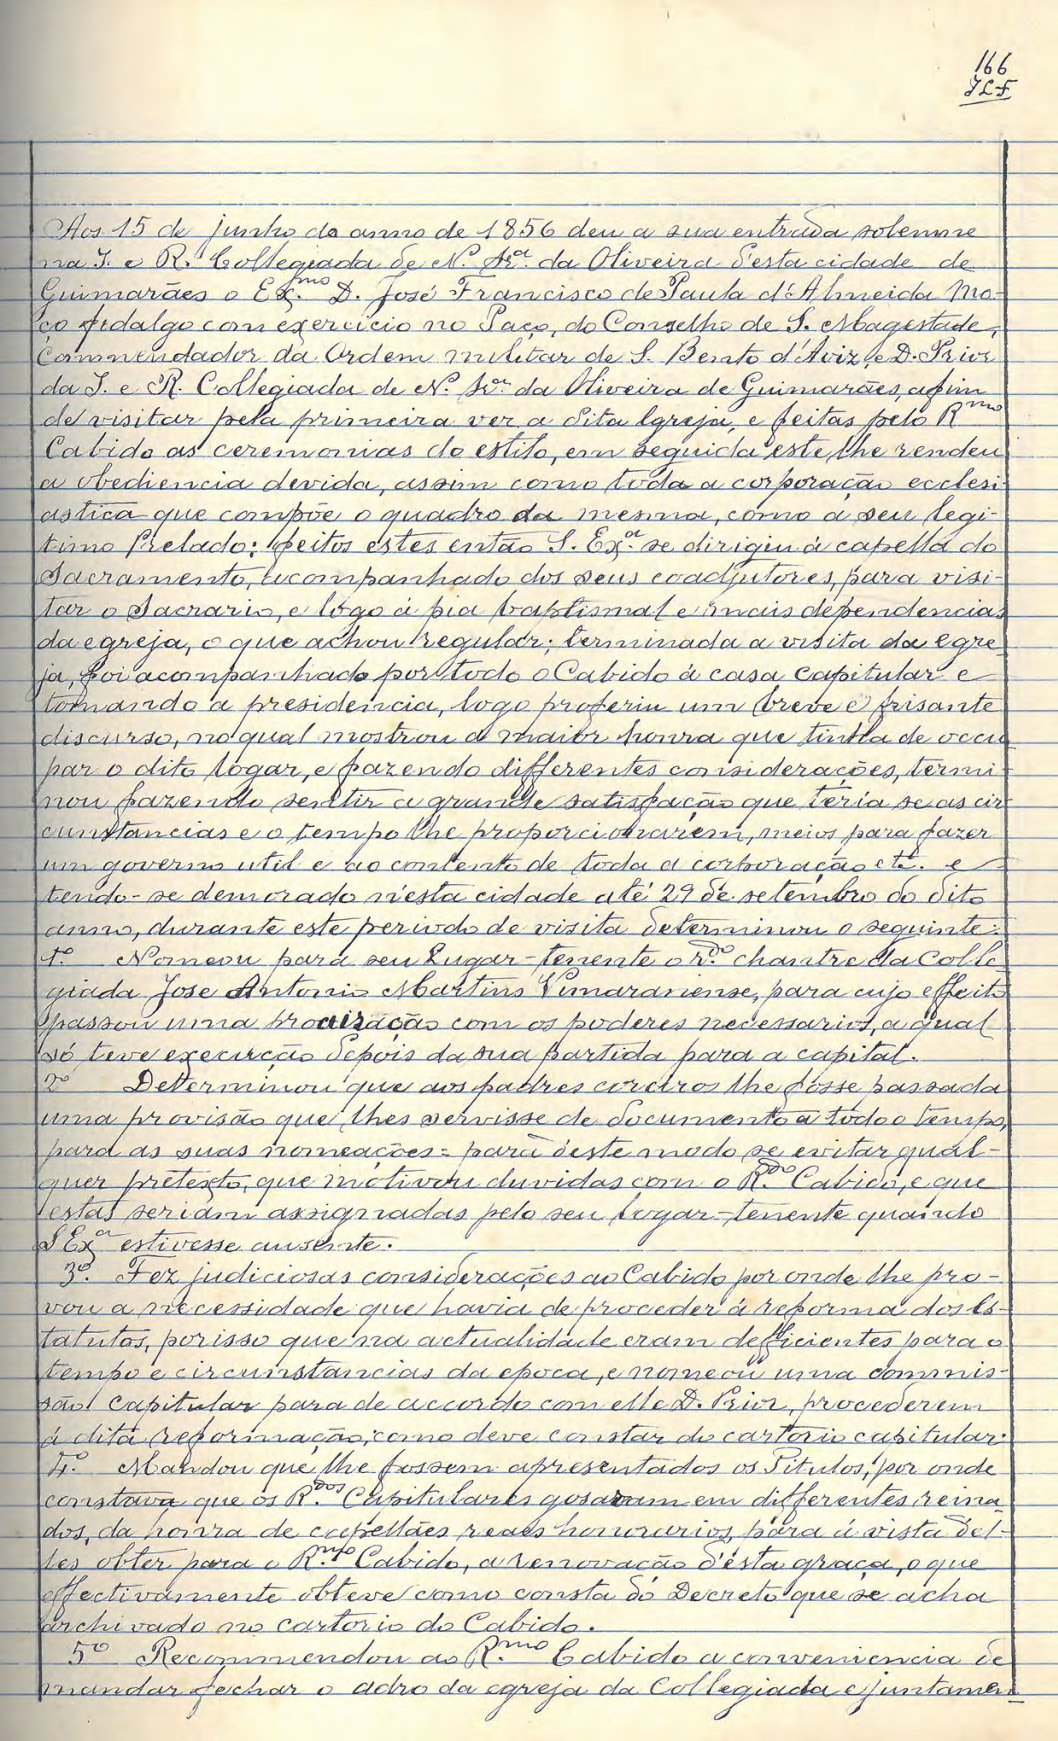 166
JLF
Aos 15 de junho do anno de 1856 deu a sua entrada solemne
na I. e R.al Collegiada de N.ª Sr.ª da Oliveira d'esta cidade de
Guimarães o Ex.mo D. José Francisco de Paula d'Almeida Mo-
ço fidalgo com exercicio no Paço, do Conselho de S. Magestade,
Commendador da Ordem militar de S. Bento d'Aviz, e D. Prior
da I. e R. Collegiada de N.ª Sr.ª da Oliveira de Guimarães, a fim
de visitar pela primeira vez a dita Igreja, e feitas pelo R.mo
Cabido as ceremonias do estilo, em seguida este lhe rendeu
a obediencia devida, assim como toda a corporação ecclesi-
astica que compõe o quadro da mesma, como a seu legi-
timo Prelado; feitos estes então S. Ex.ª se dirigiu á capella do
Sacramento, acompanhado dos seus coadjutores, para visi-
tar o Sacrario, e logo á pia baptismal e mais dependencias
da egreja, o que achou regular; terminada a visita da egre-
ja, foi acompanhado por todo o Cabido á casa capitular e
tomando a presidencia, logo proferiu um breve e frisante
discurso, no qual mostrou a maior honra que tinha de occu-
par o dito logar, e fazendo differentes considerações, termi-
nou fazendo sentir a grande satisfação que teria se as cir-
cunstancias e o tempo lhe proporcionarem, meios para fazer
um governo util e ao contento de toda a corporação etc. e
tendo-se demorado n'esta cidade até 29 de setembro do dito
anno, durante este periodo de visita determinou o seguinte:
1.º Nomeou para seu Lugar-tenente o r.do chantre da Colle-
giada Jose Antonio Martins Vimaranense, para cujo effeito
passou uma procuração com os poderes necessarios, a qual
só teve execução depois da sua partida para a capital.
2º Determinou que aos padres coreiros lhe fosse passada
uma provisão que lhes servisse de documento a todo o tempo,
para as suas nomeações = para d'este modo se evitar qual-
quer pretexto, que motivou duvidas com o R.do Cabido, e que
estas seriam assignadas pelo seu logar-tenente quando
S Exª estivesse ausente.
3º. Fez judiciosas considerações ao Cabido por onde lhe pro-
vou a necessidade que havia de proceder á reforma dos Es-
tatutos, porisso que na actualidade eram defficientes para o
tempo e circumstancias da epoca, e nomeou uma commis-
são capitular para de accordo com elle D. Prior, procederem
á dita reformação, como deve constar do cartorio capitular.
4.º Mandou que lhe fossem apresentados os Titulos, por onde
constava que os R.dos Capitulares gosavam em differentes reina-
dos, da honra de capellães reaes honorarios, para á vista del-
les obter para o R.mo Cabido, a renovação d'ésta graça, o que
effectivamente obteve como consta do Decreto que se acha
archivado no cartorio do Cabido.
5º Recommendou ao R.mo Cabido a conveniencia de
mandar fechar o adro da egreja da Collegiada e juntamen-